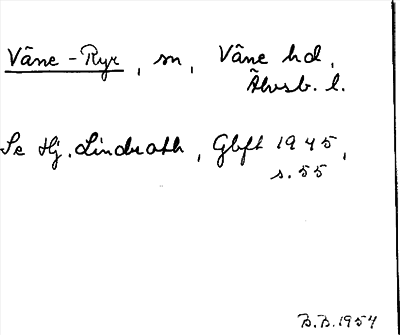 Väne-Ryr, sn, Väne hd,
Älvsb. l.
Se Hj. Lindroth, Gbft 1945,
s. 55
B.B. 1954